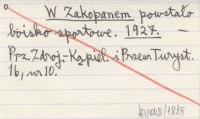 W Zakopanem powstało
boisko sportowe. 1927. —
Prz. Zdroj.-Kąpiel. i Przew. Turyst.
16, nr 10.